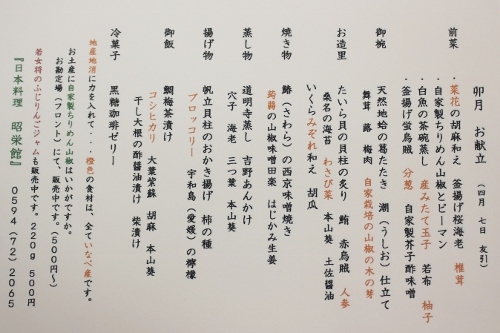 卯月　お献立　（四月　七日　友引）
前菜　・菜花の胡麻和え　釜揚げ桜海老　椎茸
・自家製ちりめん山椒とピーマン
・白魚の茶碗蒸し　産みたて玉子　若布　柚子
・釜揚げ蛍烏賊　分葱　自家製芥子酢味噌
御椀　天然地蛤の葛たたき　潮（うしお）仕立て
舞茸　蕗　梅肉　自家栽培の山椒の木の芽
お造里　たいら貝の貝柱の炙り　鮪　赤烏賊　人参
桑名の海苔　わさび菜　本山葵　土佐醤油
いくらみぞれ和え　胡瓜
焼き物　鰆（さわら）の西京味噌焼き
蒟蒻の山椒味噌田楽　はじかみ生姜
蒸し物　道明寺蒸し　吉野あんかけ
穴子　海老　三つ葉　本山葵
揚げ物　帆立貝柱のおかき揚げ　柿の種
ブロッコリー　宇和島（愛媛）の檸檬
御飯　鯛梅茶漬け
コシヒカリ　大葉紫蘇　胡麻　本山葵
干し大根の酢醤油漬け　柴漬け
冷菓子　黒糖珈琲ゼリー
地産地消に力を入れて・・・橙色の食材は、全ていなべ産です。
お土産に自家製ちりめん山椒はいかがですか。
お勘定場（フロント）にて、販売中です。（５００円～）
若女将のふじりんごジャムも販売中です。２２０ｇ　５００円
『日本料理　昭栄館』　０５９４（７２）２０６５